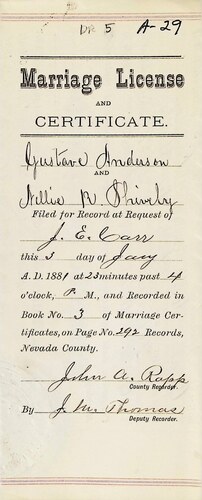 DP. 5 A-29
Marriage License
AND
CERTIFICATE.
Gustave Anderson
AND
Nellie R. Shively
Filed for Record at Request of
J. E. Carr
this 3 day of Jany
A. D. 1881 at 23 minutes past 4
o'clock, P. M., and Recorded in
Book No. 3 of Marriage Cer-
tificates, on Page No. 292 Records,
Nevada County.
John A. Rapp
County Recorder.
By J. M. Thomas
Deputy Recorder.